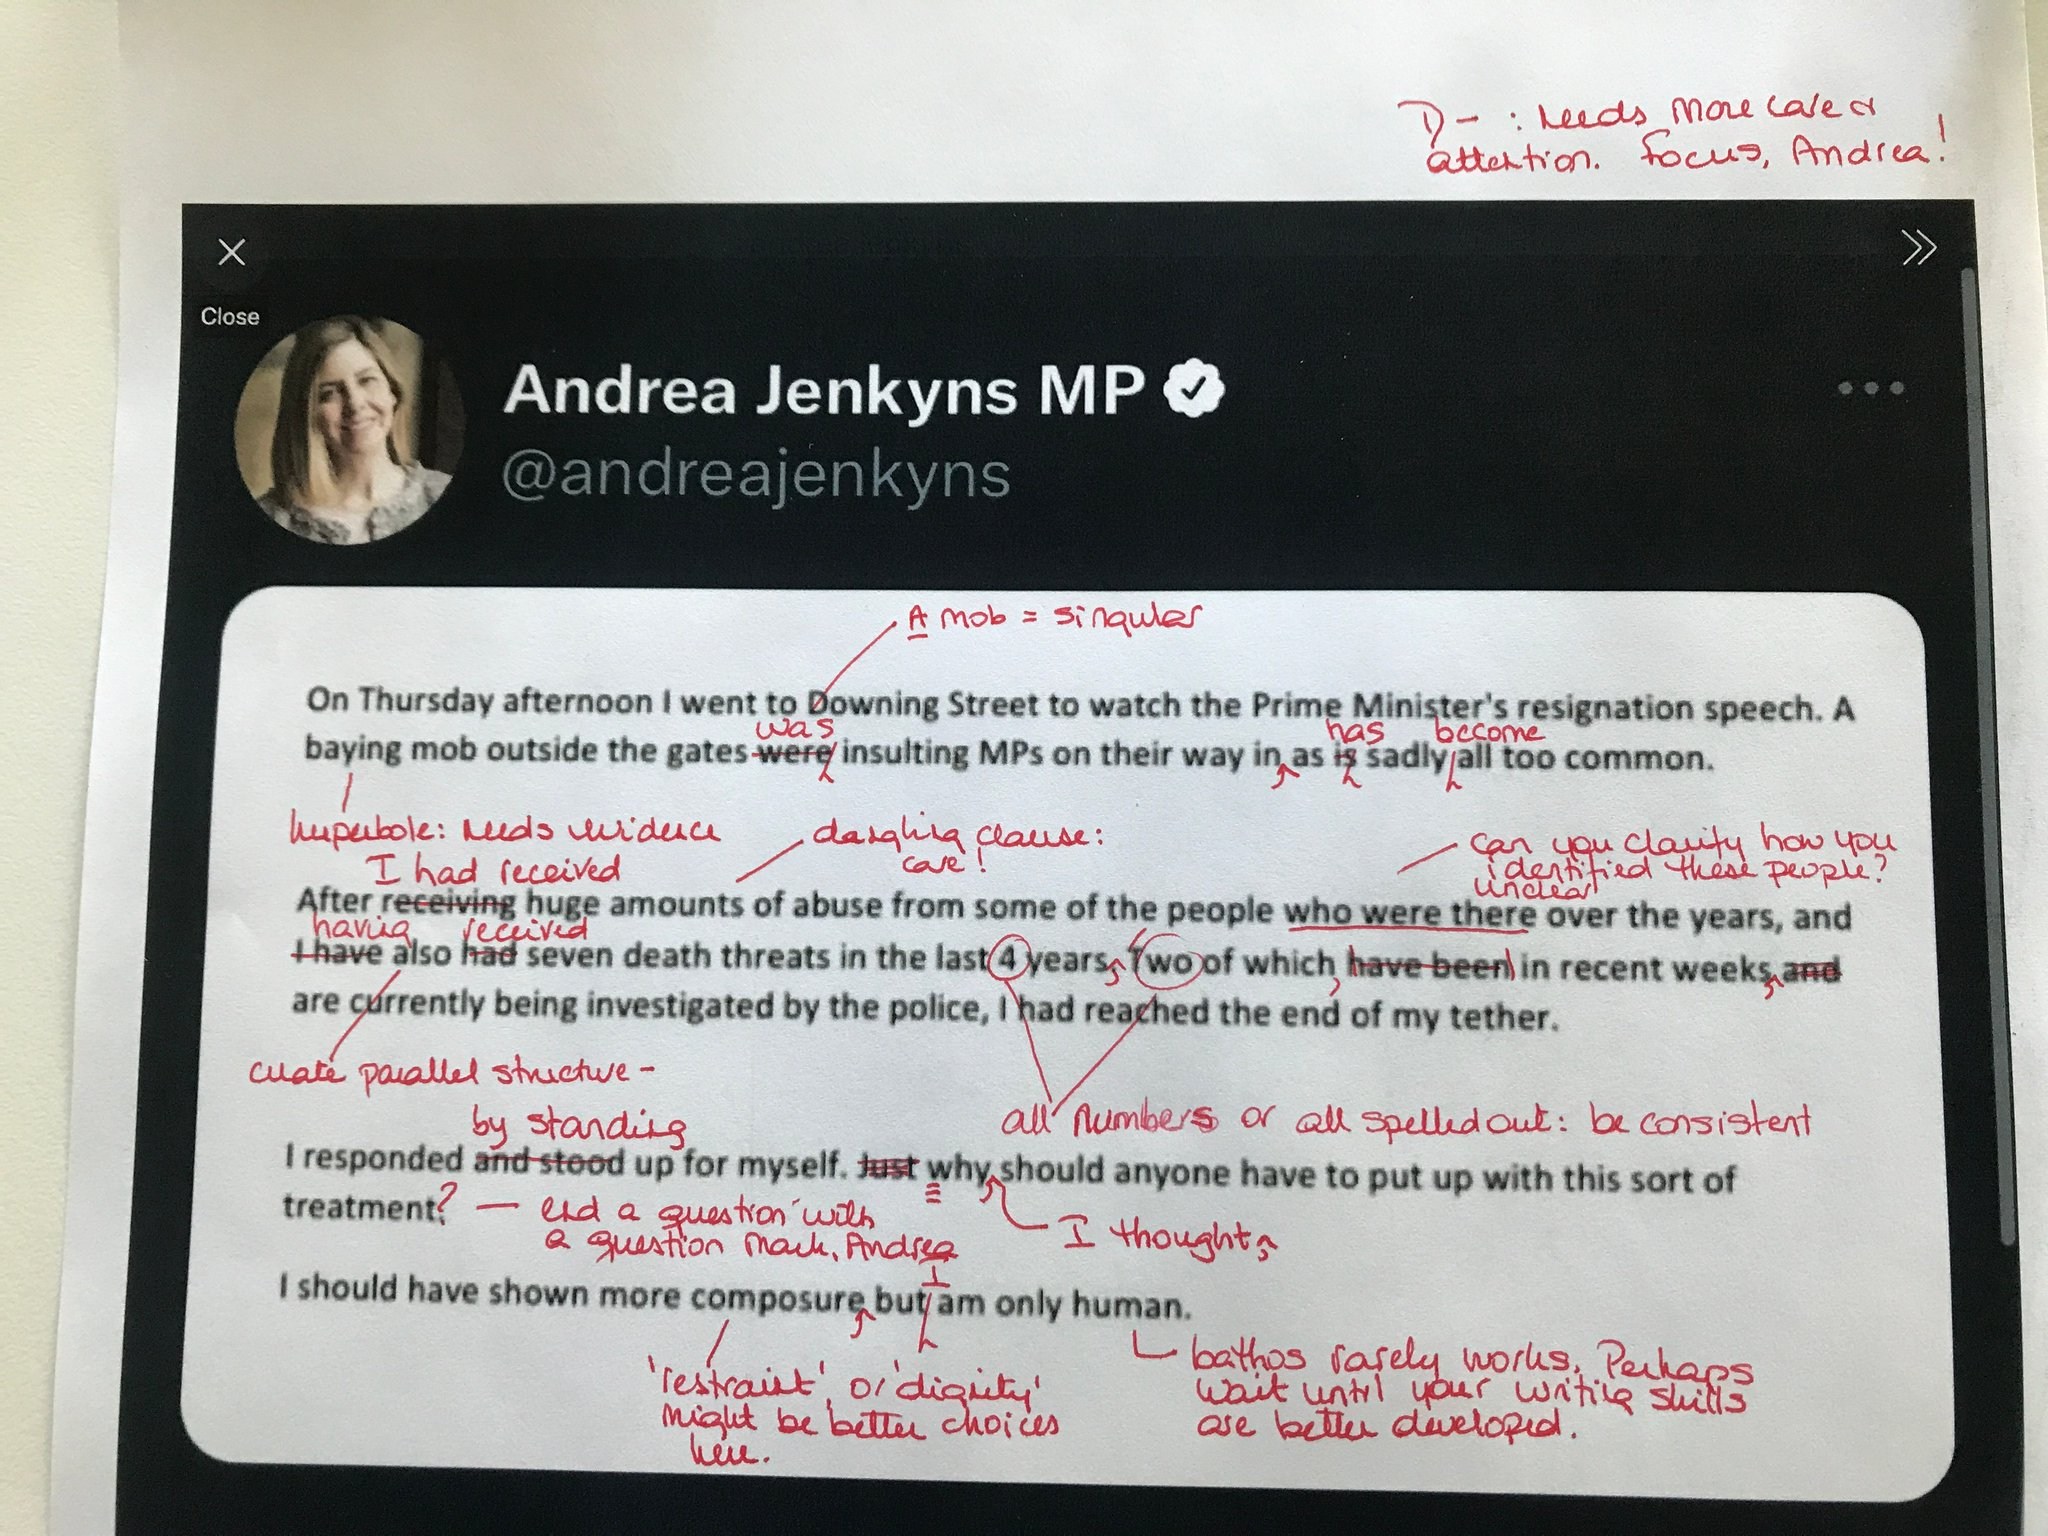 D- : Needs more care &
attention. Focus, Andrea!
Close
Andrea Jenkyns MP
@andreajenkyns
A mob = singular
On Thursday afternoon I went to Downing Street to watch the Prime Minister's resignation speech. A
was has become
baying mob outside the gates were insulting MPs on their way in, as is sadly all too common.
hyperbole: needs evidence
dangling clause:
care!
can you clarify how you
identified these people?
unclear
I had received
After receiving huge amounts of abuse from some of the people who were there over the years, and
having received
I have also had seven death threats in the last 4 years, Two of which, have been in recent weeks, and
are currently being investigated by the police, I had reached the end of my tether.
create parallel structure -
all numbers or all spelled out: be consistent
by standing
I responded and stood up for myself. Just why, should anyone have to put up with this sort of
treatment?
— end a question with
a question mark, Andrea
I thought,
I
I should have shown more composure, but am only human.
'restraint' or 'dignity'
might be better choices
here.
bathos rarely works. Perhaps
wait until your writing skills
are better developed.